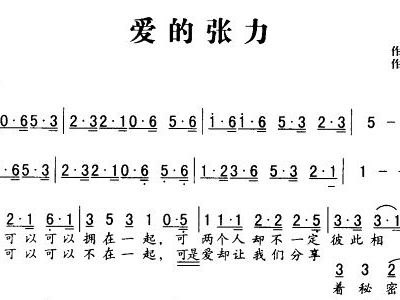 爱的张力
作
作
0·65·3 | 2·32·10·6 5·6 | i·6i·6 5·3 2·3 | 5 -
5·3 | 2·32·10·6 5·6 | 2·12·3 5·3 2·1 | 1 - -
2·1 6·1 | 3 5 3 1 0·5 | 2·1 2·2 2·5 | 3 3·1
可以可以拥在一起，可 两个人却不一定 彼此相
可以可以不在一起，可是爱却让我们分享
3 3 2
着秘密